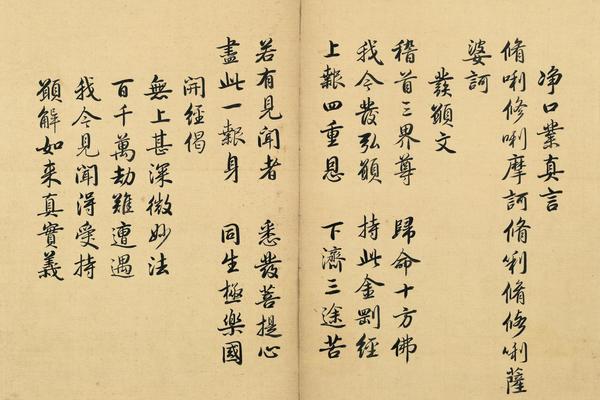 淨口業真言
脩唎修唎摩訶脩唎脩修唎薩
婆訶
發願文
稽首三界尊 歸命十方佛
我今發弘願 持此金剛經
上報四重恩 下濟三途苦
若有見聞者 悉發菩提心
盡此一報身 同生極樂國
開經偈
無上甚深微妙法
百千萬劫難遭遇
我今見聞得受持
願解如來真實義